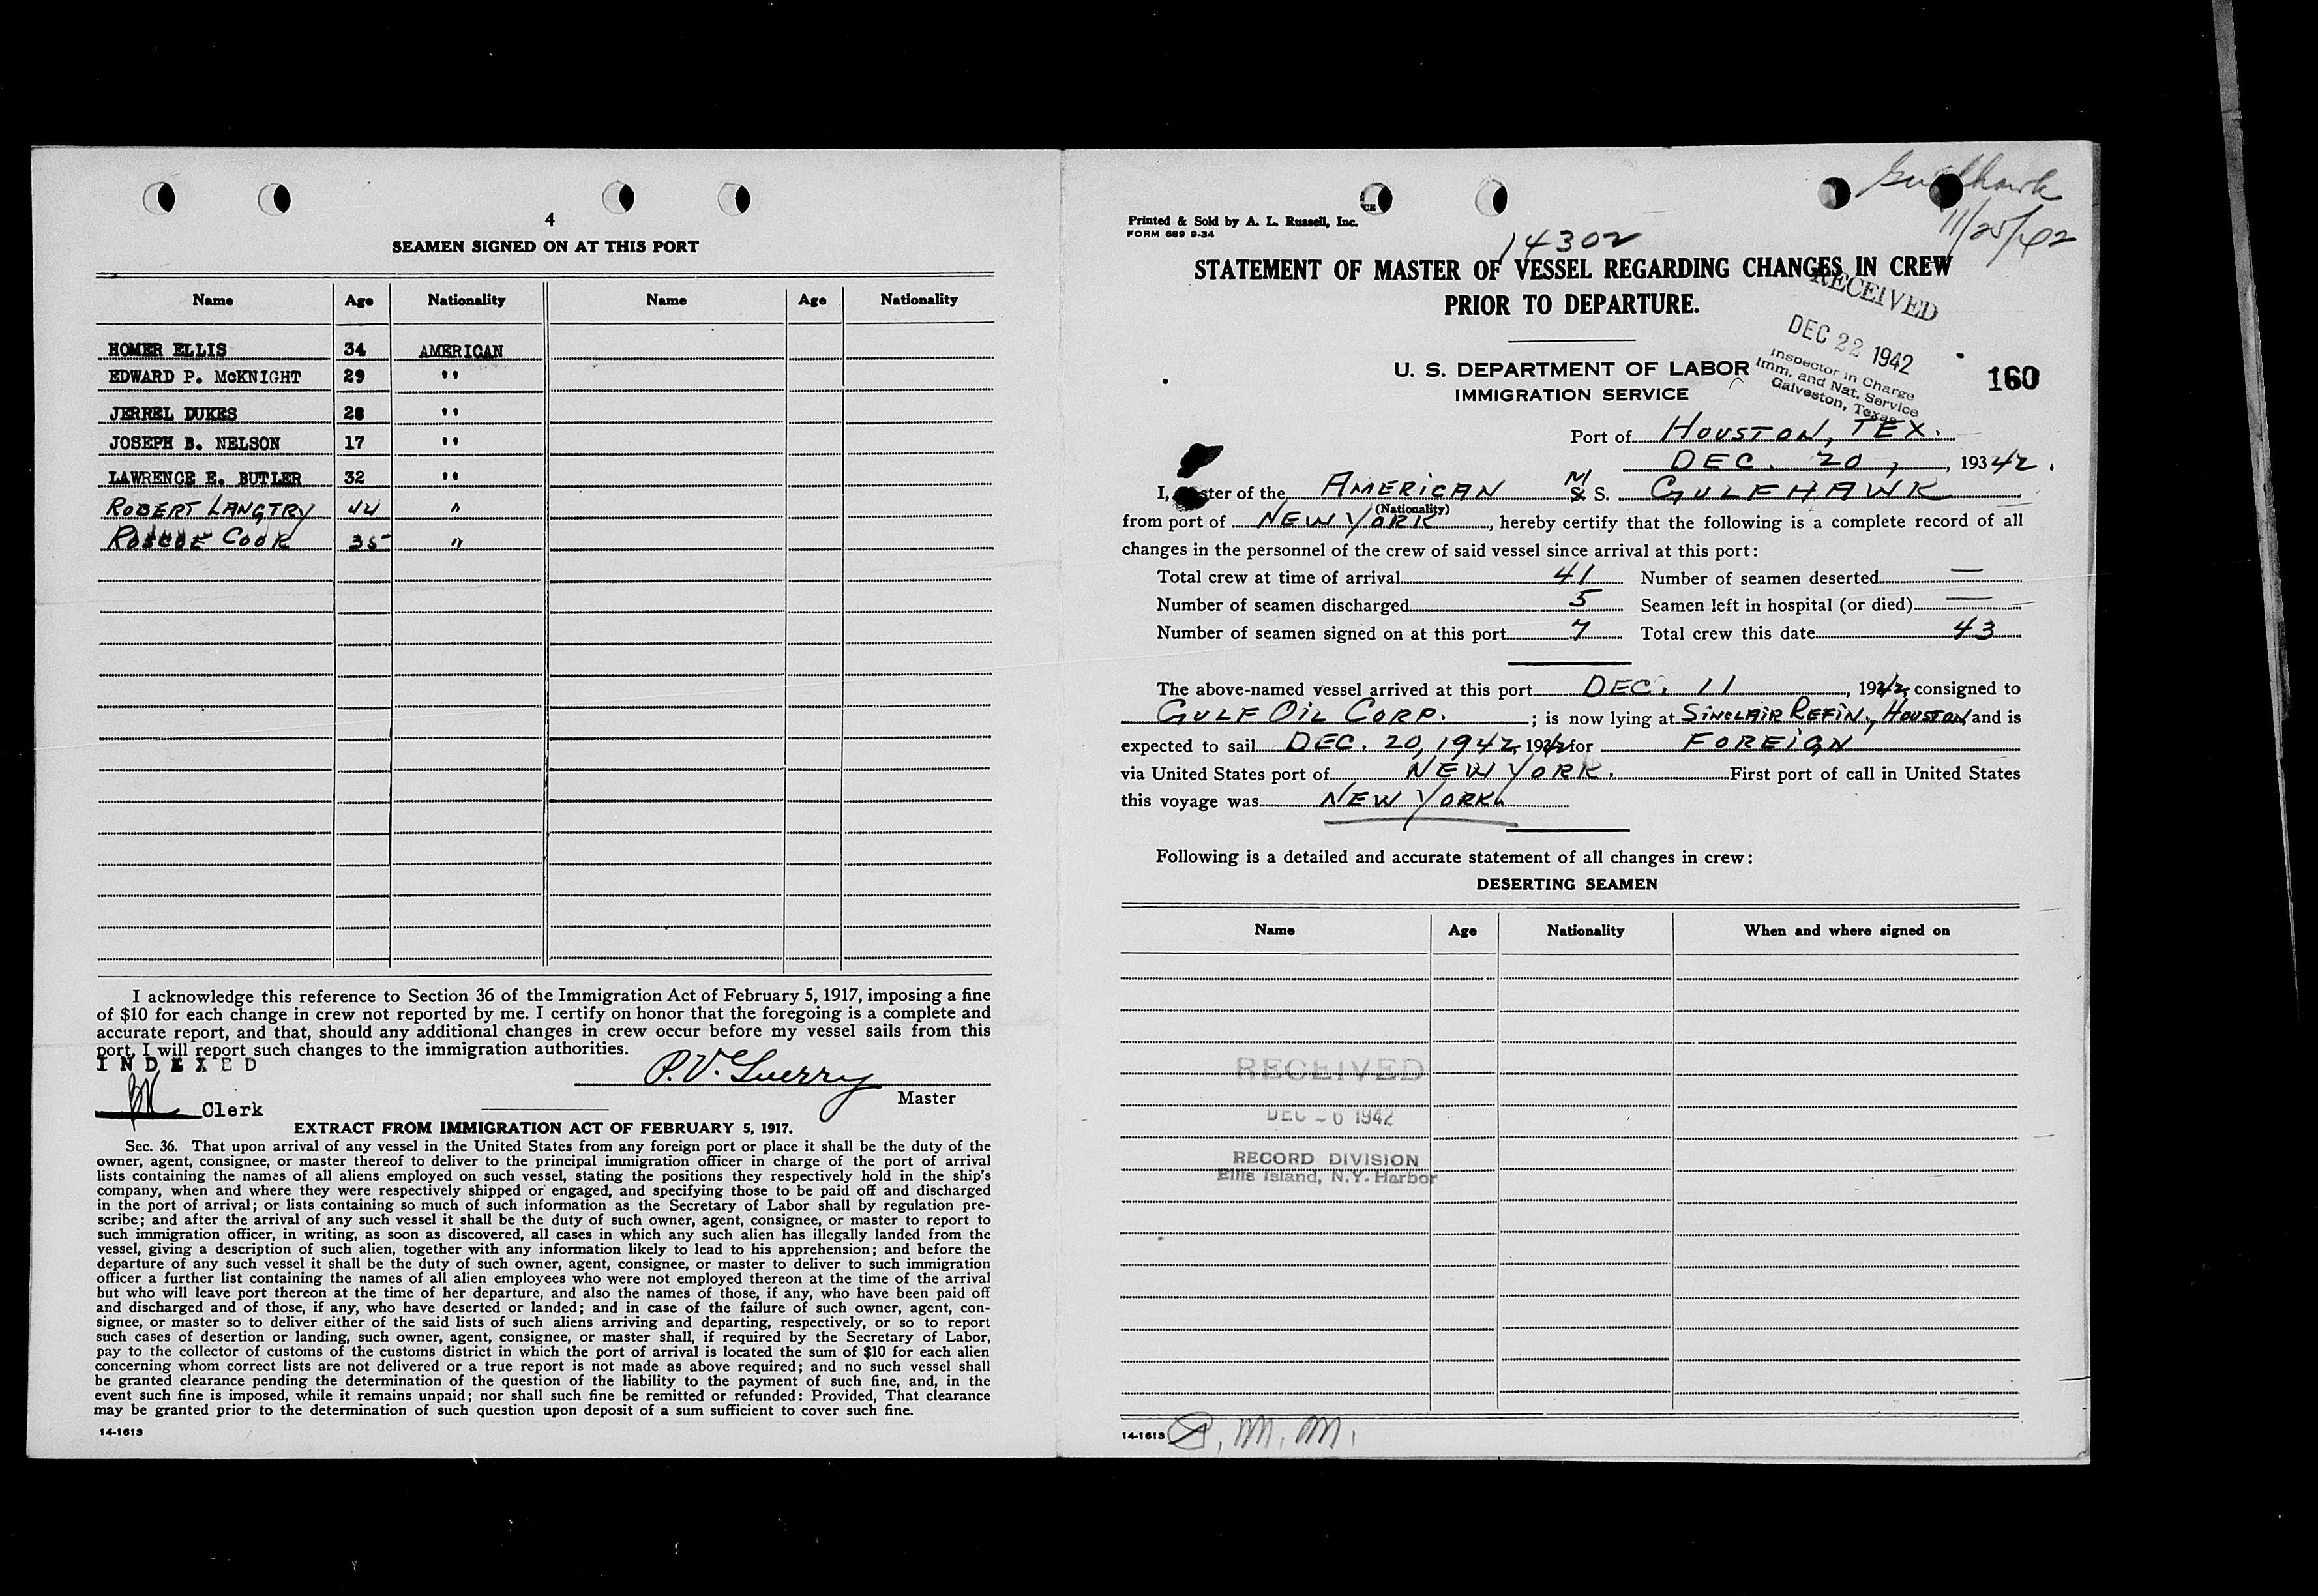 4
SEAMEN SIGNED ON AT THIS PORT
Name Age Nationality Name Age Nationality
HOMER ELLIS 34 AMERICAN
EDWARD P. McKNIGHT 29 ''
JERREL DUKES 28 ''
JOSEPH B. NELSON 17 ''
LAWRENCE E. BUTLER 32 ''
ROBERT LANGTRY 44 "
ROSCOE COOK 35 "
I acknowledge this reference to Section 36 of the Immigration Act of February 5, 1917, imposing a fine
of $10 for each change in crew not reported by me. I certify on honor that the foregoing is a complete and
accurate report, and that, should any additional changes in crew occur before my vessel sails from this
port, I will report such changes to the immigration authorities.
INDEXED
P.V. Guerry
Master
Clerk
EXTRACT FROM IMMIGRATION ACT OF FEBRUARY 5, 1917.
Sec. 36. That upon arrival of any vessel in the United States from any foreign port or place it shall be the duty of the
owner, agent, consignee, or master thereof to deliver to the principal immigration officer in charge of the port of arrival
lists containing the names of all aliens employed on such vessel, stating the positions they respectively hold in the ship's
company, when and where they were respectively shipped or engaged, and specifying those to be paid off and discharged
in the port of arrival; or lists containing so much of such information as the Secretary of Labor shall by regulation pre-
scribe; and after the arrival of any such vessel it shall be the duty of such owner, agent, consignee, or master to report to
such immigration officer, in writing, as soon as discovered, all cases in which any such alien has illegally landed from the
vessel, giving a description of such alien, together with any information likely to lead to his apprehension; and before the
departure of any such vessel it shall be the duty of such owner, agent, consignee, or master to deliver to such immigration
officer a further list containing the names of all alien employees who were not employed thereon at the time of the arrival
but who will leave port thereon at the time of her departure, and also the names of those, if any, who have been paid off
and discharged and of those, if any, who have deserted or landed; and in case of the failure of such owner, agent, con-
signee, or master so to deliver either of the said lists of such aliens arriving and departing, respectively, or so to report
such cases of desertion or landing, such owner, agent, consignee, or master shall, if required by the Secretary of Labor,
pay to the collector of customs of the customs district in which the port of arrival is located the sum of $10 for each alien
concerning whom correct lists are not delivered or a true report is not made as above required; and no such vessel shall
be granted clearance pending the determination of the question of the liability to the payment of such fine, and, in the
event such fine is imposed, while it remains unpaid; nor shall such fine be remitted or refunded: Provided, That clearance
may be granted prior to the determination of such question upon deposit of a sum sufficient to cover such fine.
14-1613
Gulfhawk
11/25/42
Printed & Sold by A. L. Russell, Inc.
FORM 689 9-34
14302
STATEMENT OF MASTER OF VESSEL REGARDING CHANGES IN CREW
PRIOR TO DEPARTURE.
RECEIVED
DEC 22 1942
Inspector in Charge
Imm. and Nat. Service
Galveston, Texas
U. S. DEPARTMENT OF LABOR
IMMIGRATION SERVICE
160
Port of HOUSTON, TEX.
DEC. 20, , 19342.
I, ster of the AMERICAN M S. GULFHAWK
(Nationality)
from port of NEW YORK, hereby certify that the following is a complete record of all
changes in the personnel of the crew of said vessel since arrival at this port:
Total crew at time of arrival 41 Number of seamen deserted —
Number of seamen discharged 5 Seamen left in hospital (or died) —
Number of seamen signed on at this port 7 Total crew this date 43
The above-named vessel arrived at this port DEC. 11, 1942, consigned to
GULF OIL CORP. ; is now lying at SINCLAIR REFIN., HOUSTON and is
expected to sail DEC. 20, 1942, 1942 for FOREIGN
via United States port of NEW YORK. First port of call in United States
this voyage was NEW YORK
Following is a detailed and accurate statement of all changes in crew:
DESERTING SEAMEN
Name Age Nationality When and where signed on
RECEIVED
DEC - 6 1942
RECORD DIVISION
Ellis Island, N.Y. Harbor
14-1613
M. M.